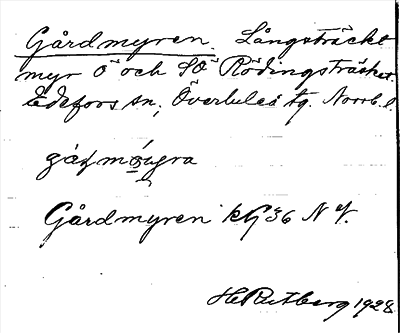 Gårdmyren. Långsträckt
myr Ö och SO Rödingsträsket.
Edefors sn; Överluleå tg. Norrb. l.
Gårdmyren kG36 NV.
H Rutberg 1928